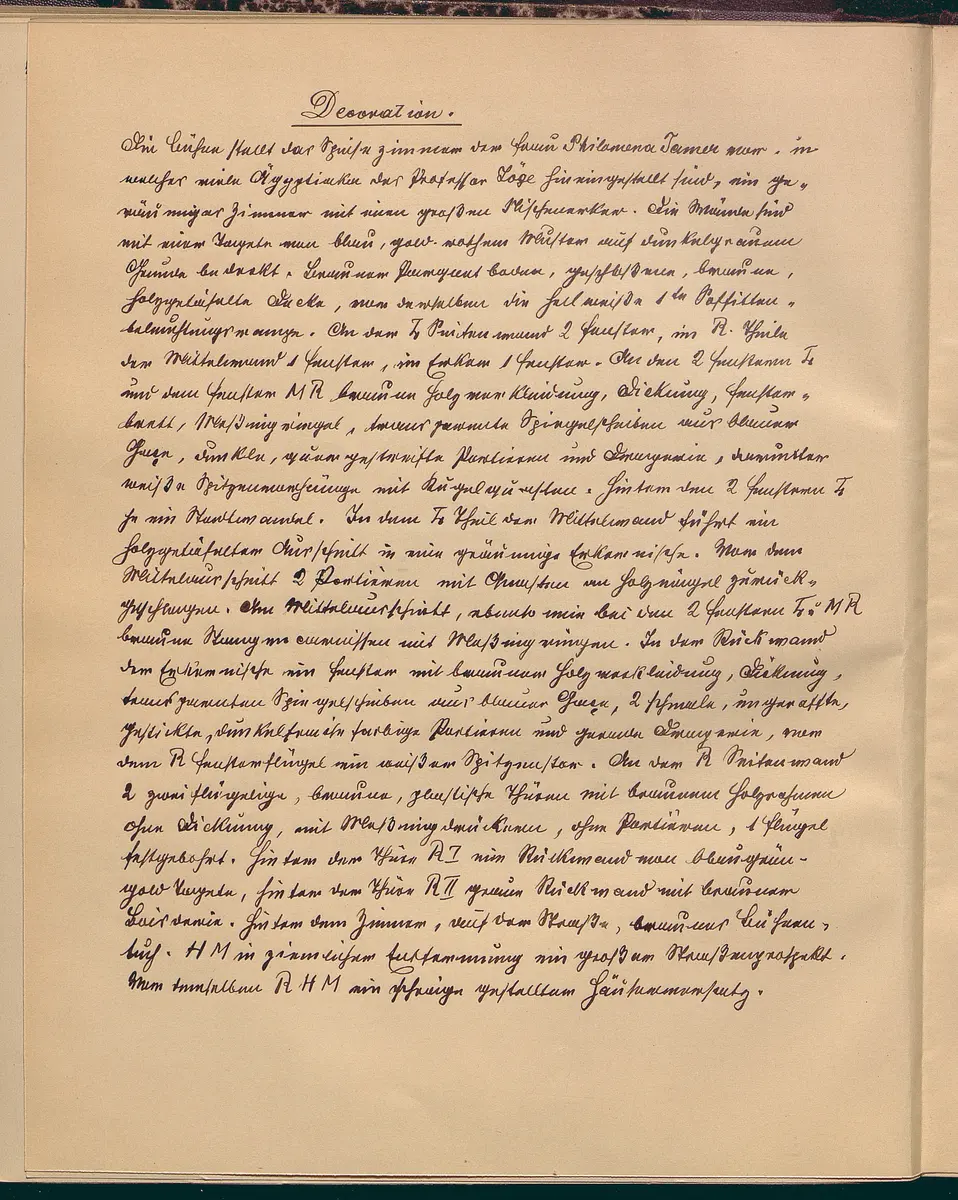 Decoration.
Die Bühne stellt das Speisezimmer der Frau Philomena Jamer vor, in
welches viele Ägyptiaka des Professor Töze hineingestellt sind, ein ge-
räumiges Zimmer mit einen großen Nischenerker. Die Wände sind
mit einer Tapete von blau, gold-rothem Muster auf dunkelgrauem
Grunde bedeckt. Brauner Parquetboden, geschloßene, braune,
holzgetäfelte Decke, vor derselben die hellweiße 1te Soffitten-
beleuchtungsrampe. An der L Seitenwand 2 Fenster, im R. Theile
der Mittelwand 1 Fenster, im Erker 1 Fenster. An den 2 Fenstern L
und dem Fenster MR braune Holzverkleidung, Dickung, Fenster-
brett, Meßingriegel, transparente Spiegelscheiben aus blauer
Gaze, dunkle, quergestreifte Portieren und Draperie, darunter
weiße Spitzenvorhänge mit Kugelquasten. Hinter den 2 Fenstern L
je ein Stadtwandel. In dem L Theil der Mittelwand führt ein
holzgetäfelter Ausschnitt in eine geräumige Erkernische. Vor dem
Mittelausschnitt 2 Portièren mit Quasten an Holznägel zurück-
geschlungen. Am Mittelausschnitt, ebenso wie bei den 2 Fenstern L u MR
braune Stangencarnissen mit Meßingringen. In der Rückwand
der Erkernische ein Fenster mit brauner Holzverkleidung, Dickung,
transparenten Spiegelscheiben aus blauer Gaze, 2 schmale, ungeraffte,
gestickte, dunkelfraisefarbige Portieren und gerade Draperie, vor
dem R Fensterflügel ein weißer Spitzenstor. An der R Seitenwand
2 zweiflügelige, braune, plastische Thüren mit braunem Holzrahmen
ohne Dickung, mit Meßingdrückern, ohne Portièren, 1 Flügel
festgebohrt. Hinter der Thüre R I eine Rückwand von blaugrün-
gold Tapete, hinter der Thüre R II graue Rückwand mit brauner
Boiserie. Hinter dem Zimmer, auf der Straße, braunes Bühnen-
tuch. H M in ziemlicher Entfernung ein großer Straßenprospekt.
Vor demselben R H M ein schräge gestellter Häuserversatz.